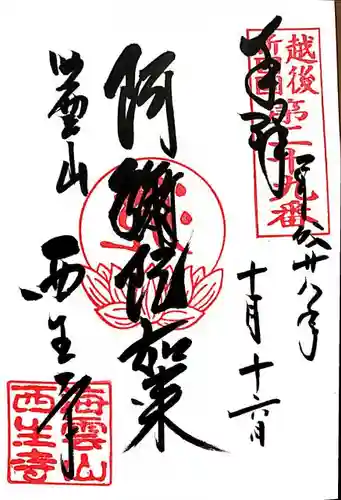 越後
第二十九番
奉拝
平成廿八年
十月十六日
阿彌陀如来
海雲山
西生寺
海雲山
西生寺